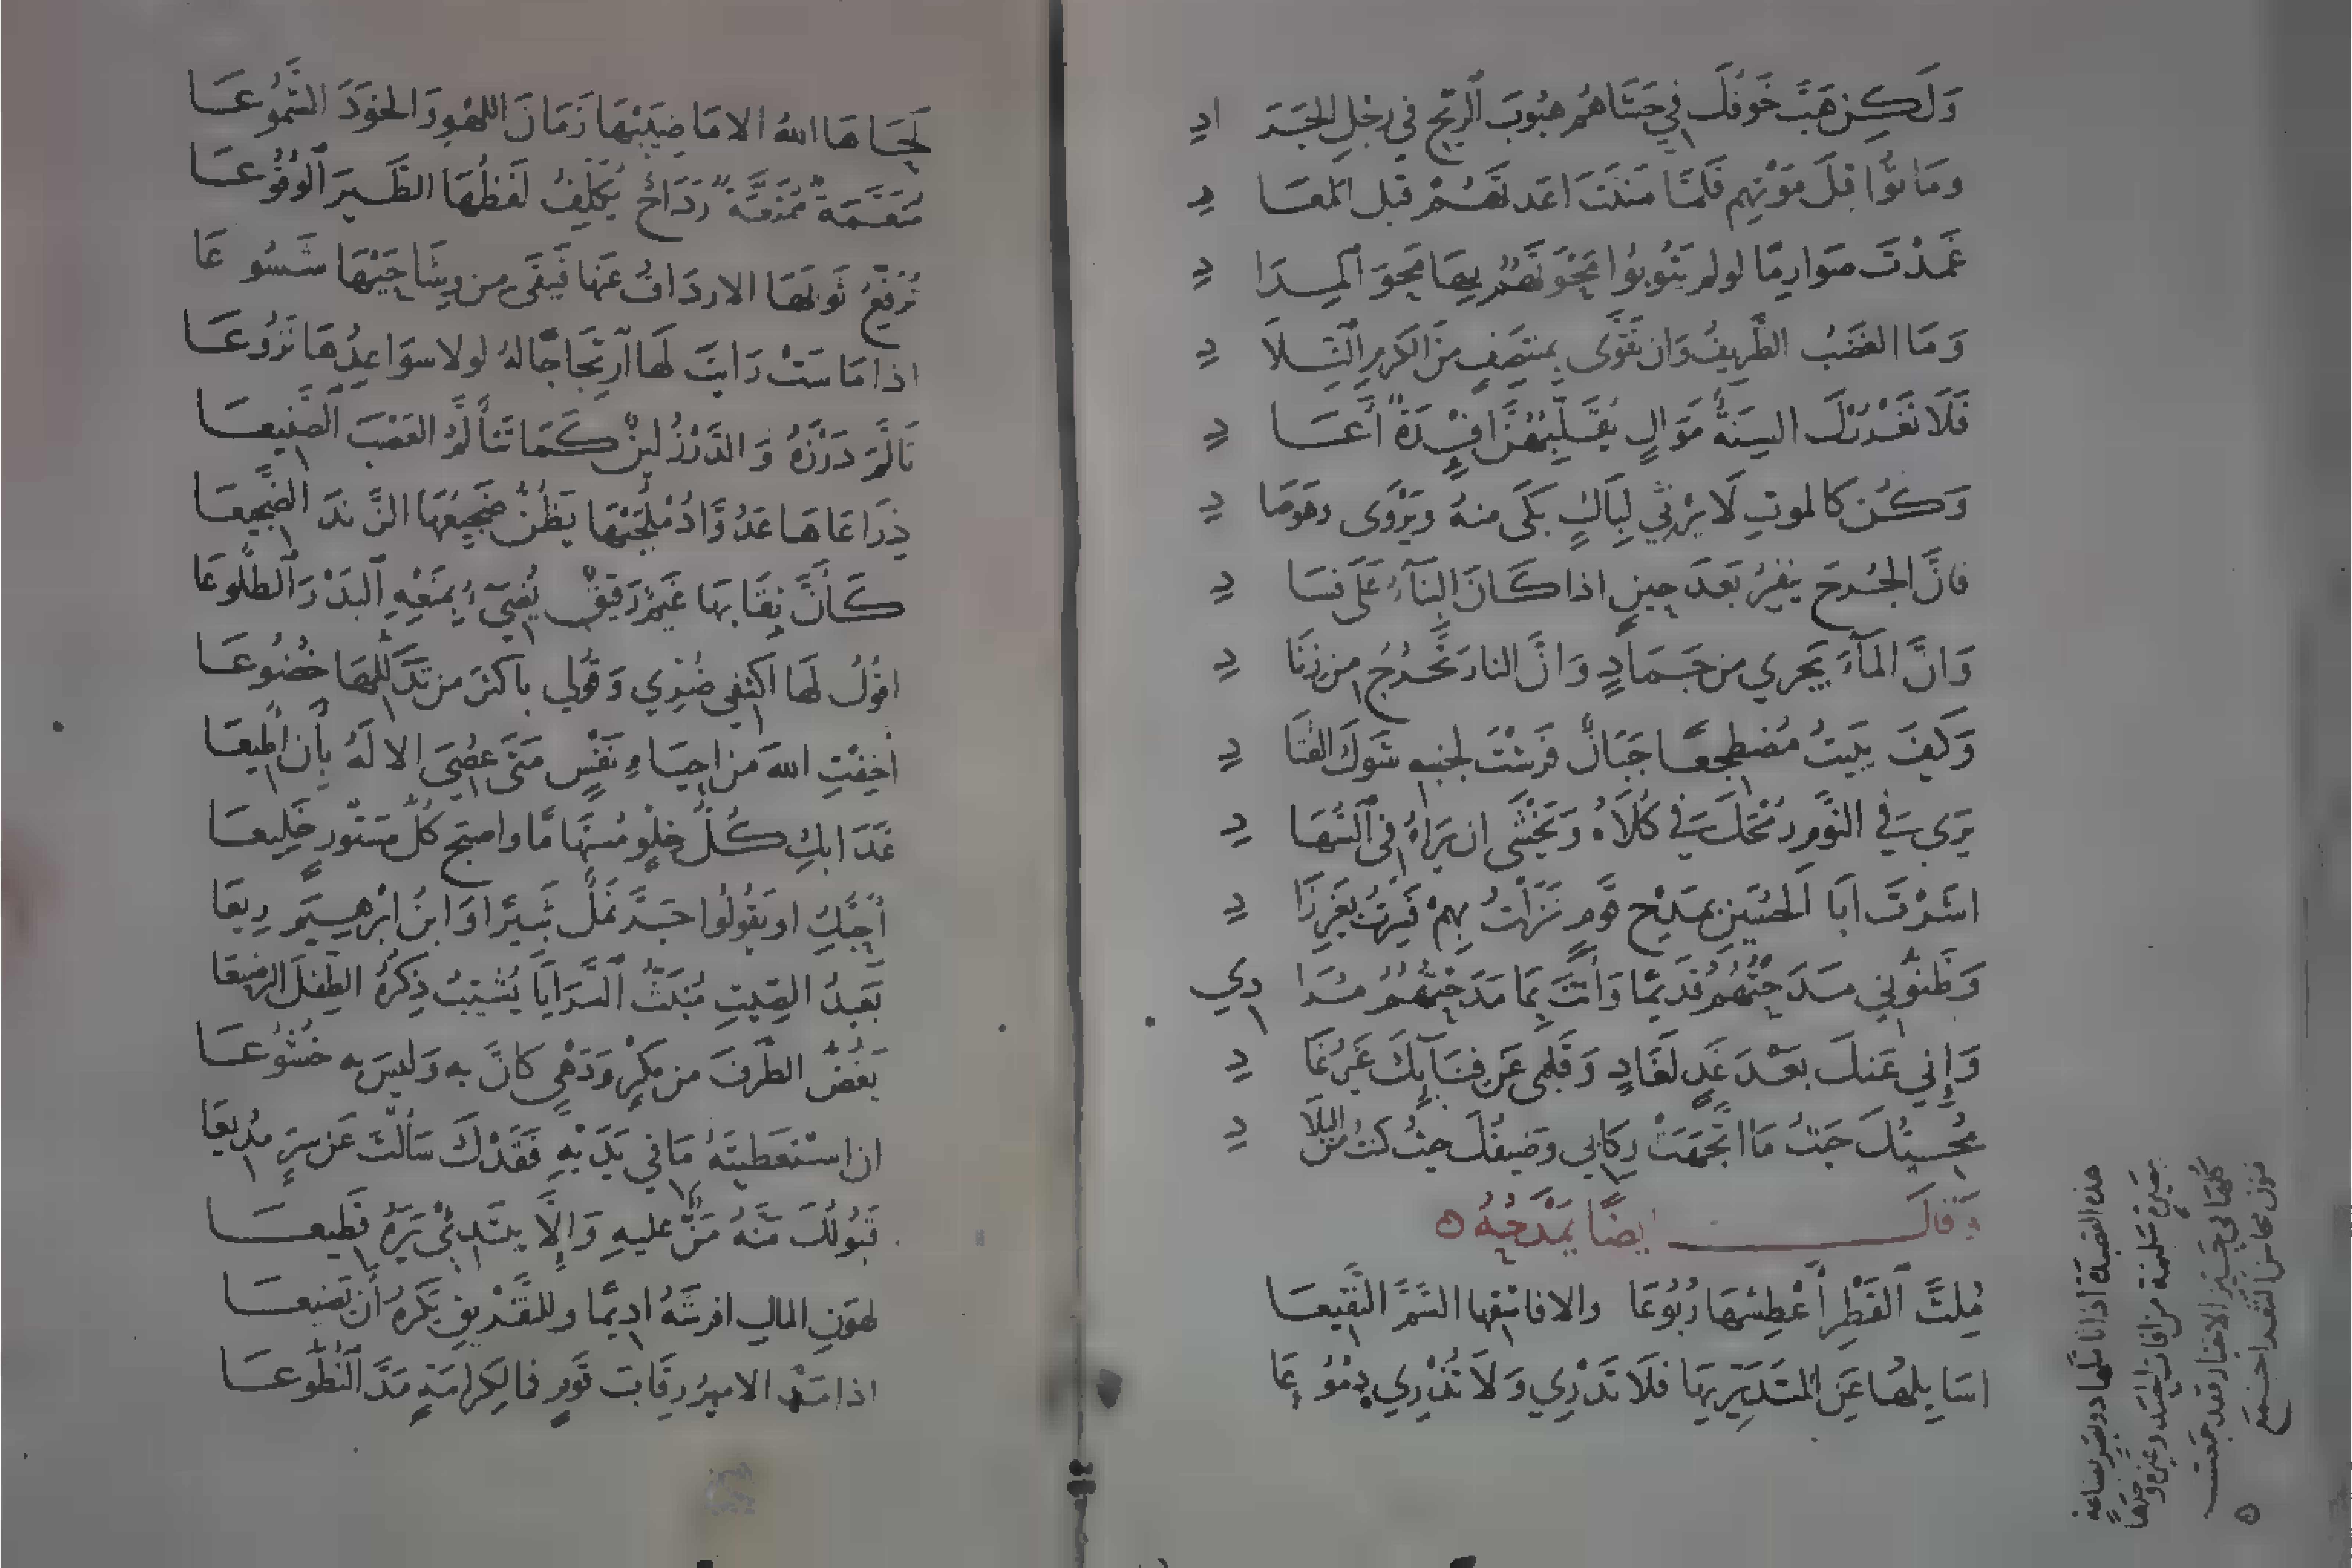 وَلَكِن هَبَّ خَوفُكَ في حَشَاهُم هبُوبَ ٱلرّيح في رِجلِ الجَرَادِ
وَمَاتُوا قبلَ مَوْتِهِم فَلمَّا مَنَنتَ اَعَدتَهُمْ قبل المعَادِ
غَمَدْتَ صَوارِمًا لو لم يَتُوبُوا مَحَوْتَهُمُ بِهَا مَحْوَ ٱلمِدَادِ
وَمَا الغَضَبُ الطّرِيفُ وَان تَقَوَّى بمنتَصِفٍ مِنَ الكرَمِ ٱلتِّلَادِ
فَلَا تَغْرُرْكَ السِنَةٌ مَوَالٍ تُقَلِّبُهُنَّ افْئِدَةٌ أَعَادِ
وَكُن كالموتِ لَا يَرْثي لِبَاكٍ بَكَى منهُ ويَرْوَى وهوَ صَادِ
فانَّ الجُرحَ يَنفِرُ بَعدَ حِينٍ اذا كَانَ البنَآءُ عَلَى فسَادِ
وَانَّ المَآءَ يَجري من جَمَادٍ وَانَّ النارَ تَخْرُجُ من زِنَادِ
وَكَيفَ يَبيتُ مُضطجعًا جَبَانٌ فَرَشْتَ لجنبه شَوكَ القَتَادِ
يَرَى في النَّومِ رُمْحَكَ في كُلَاهُ وَيَخْشَى ان يَرَاهُ فى ٱلسُّهَادِ
اشَرْتَ ابَا ٱلحُسَينِ بمَدْحِ قَومٍ نَزَلْتُ بِهِمْ فَسِرْتُ بِغَيرِ زَادِ
وَظَنُّوني مَدَحْتُهُمُ قَدِيمًا وَأنتَ بِمَا مَدَحْتُهُمُ مُرَادِي
وَإِنّي عَنكَ بعْدَ غَدٍ لَغَادٍ وَقَلبى عَن فِنَآئِكَ غيرُ غَادِ
مُحِبُّكَ حَيثُ مَا اتَّجَهَتْ رِكَابي وَضَيفُكَ حيثُ كنتُ من البِلَادِ
وَقالَ ايضًا يَمْدَحُهُ
مُلِثَّ ٱلقَطْرِ أعْطِشهَا رُبُوعَا والا فاسْقِهَا السَّمَّ النَّقِيعَا
اسَايِلُهَا عَنِ المُتَدَيِّرِيهَا فَلَا تَدْرِي وَلَا تُذْرِي دُمُوعَا
هذه القصيدة اذا تأملها ذو بصر بصاعة
بَصيرَةٍ سَليمَة من افات الحسد وغيره وجدها
كلها في حيز الاختيار فقد جمعت
فنون محاسن الشعر اجمع
لَحَاهَا اللهُ الا مَاضِيَيْهَا زَمَانَ اللهْوِ وَالخَوْدَ الشَّمُوعَا
مُنَعَّمَةٌ مُمَنَّعَةٌ رَدَاحٌ يُكَلِّفُ لَفظُهَا الطَّيرَ ٱلوُقُوعَا
تُرَفِّعُ ثَوبَهَا الاردَافُ عَنها فَيَبقَى من وِشَاحَيْهَا شَسُوعَا
اذا مَاسَتْ رَايتَ لَها ٱرتِجَاجًا لهُ لولا سوَاعِدُهَا نَزُوعَا
تَألَّمَ دَرْزَهُ وَالدَّرْزُ لينٌ كَمَا تَتألَّمُ العَضْبَ ٱلصَّنِيعَا
ذِرَاعَاهَا عَدُوَّا دُمْلُجَيْهَا يَظُنُّ ضَجيعُهَا الزَّندَ الضَّجِيعَا
كَأَنَّ نِقَابهَا غَيمٌ رَقيقٌ يُضِيءُ بِمَنعِهِ ٱلبَدْرَ ٱلطُّلُوعَا
اقولُ لَها اكشِفي ضُرِّي وَقَولي باكثرَ من تَدَلُّلِهَا خُضُوعَا
أخِفْتِ اللهَ من احيَاءِ نَفْسٍ مَتَى عُصِيَ الالَهُ بِأن اُطِيعَا
غَدَا بكِ كُلُّ خِلوٍ مُستَهَامًا واصبَحَ كُلُّ مَستُورٍ خَلِيعَا
أُحِبُّكِ او يَقُولُوا جَرَّ نَملٌ ثَبيرًا وَابنُ ابْرهِيَمَ رِيعَا
بَعيدُ الصِّيتِ مُنبَثُّ ٱلسَّرَايَا يُشَيِّبُ ذِكرُهُ الطِّفلَ الرضيعَا
يَغُضُّ الطَّرْفَ من مَكرٍ وَدَهْيٍ كَانَّ به وَليسَ به خُشُوعَا
ان اسْتَعطَيتَهُ مَا في يَدَيْهِ فَقَدْكَ سَألتَ عَن سِرٍّ مُذِيعَا
قَبُولُكَ مَنَّهُ مَنٌّ عليهِ وَإِلَّا يبتَدِئْ يَرَهُ فَظِيعَا
لهونِ المالِ افرَشَهُ اديمًا وللتَّفْريقِ يَكرَهُ أن تَضِيعَا
اذا مَدَّ الامير رِقَابَ قَومٍ فما لِكرامَةٍ مَدَّ ٱلنُّطُوعَا